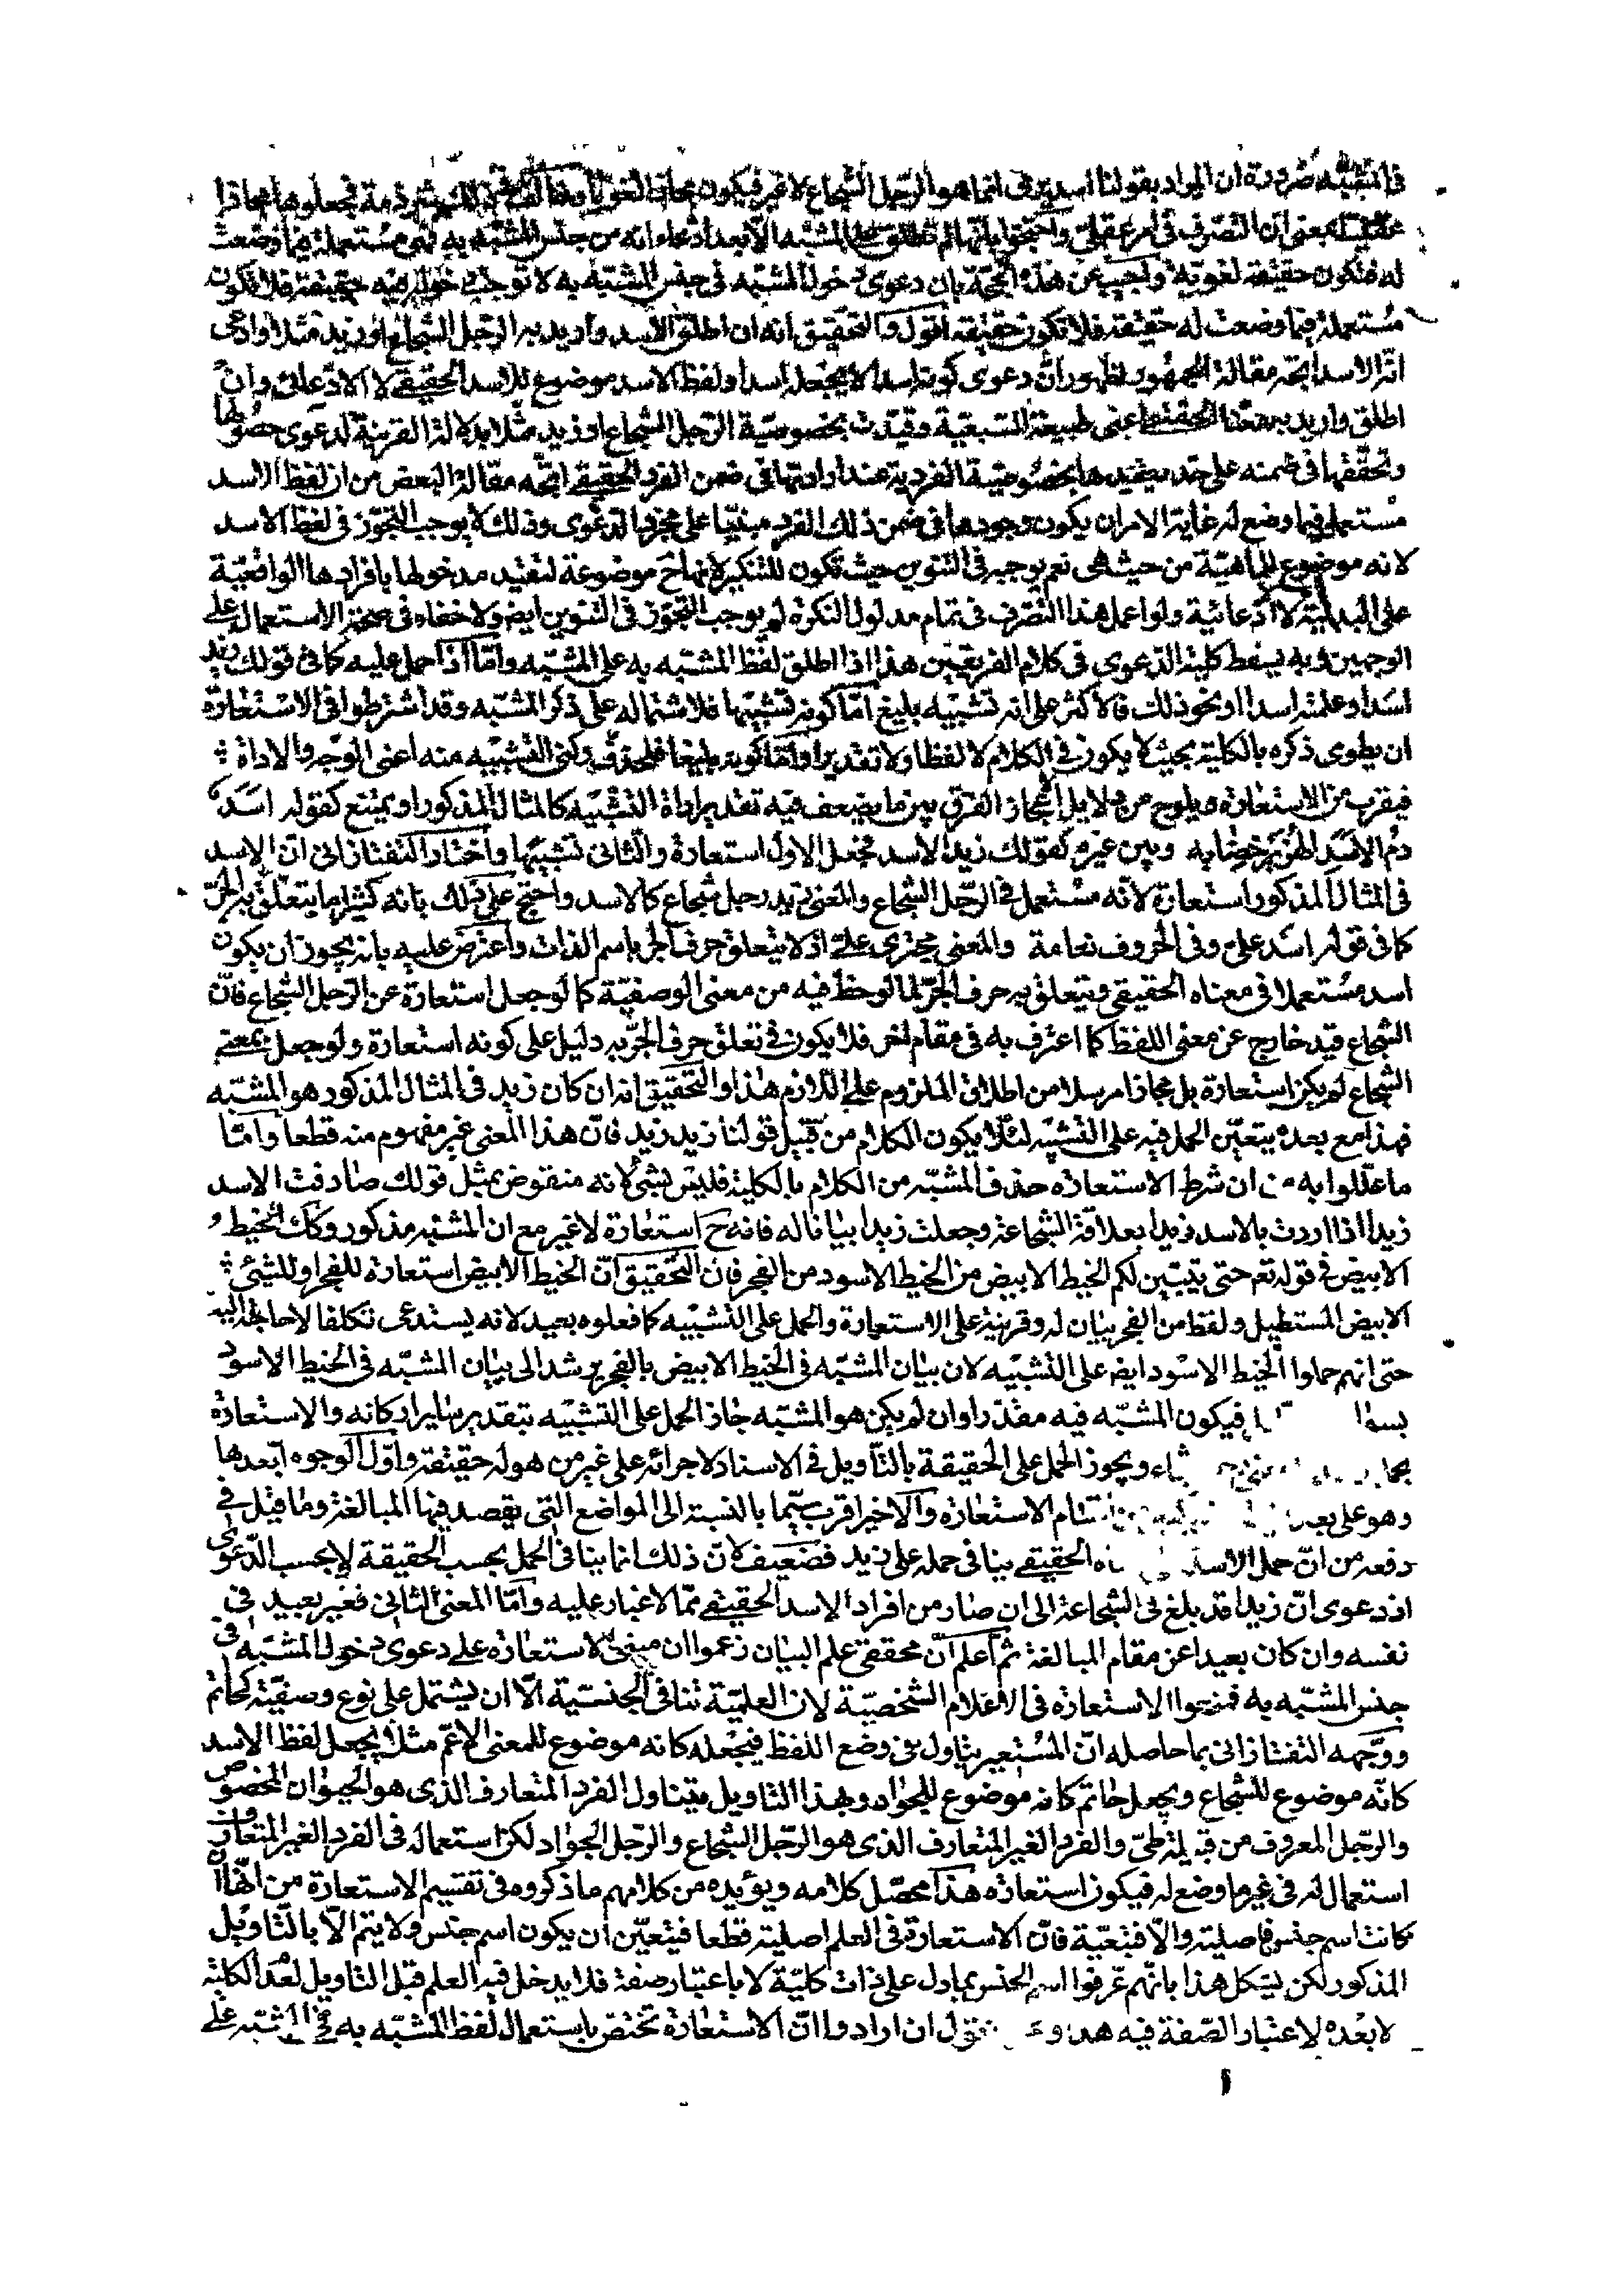 في المشبه ضرورة ان المراد بقولنا اسد يرمى انما هو الرجل الشجاع لا غير فيكون مجازا لغويا وخالف في ذلك شرذمة فجعلوها مجازا
عقليا بمعنى ان التصرف في امر عقلى واحتجوا بانها لم تطلق على المشبه الا بعد ادعاء انه من جنس المشبه به فهى مستعملة فيما وضعت
له فتكون حقيقة لغوية واجيب عن هذه الحجة بان دعوى دخول المشبه في جنس المشبه به لا توجب دخوله فيه حقيقة فلا تكون
مستعملة فيما وضعت له حقيقة فلا تكون حقيقة اقول والتحقيق انه ان اطلق الاسد واريد به الرجل الشجاع او زيد مثلا وادعى
انه الاسد اتجه مقالة الجمهور لظهور ان دعوى كونه اسدا لا يجعله اسدا ولفظ الاسد موضوع للاسد الحقيقي لا الادعائى وان
اطلق واريد به معناه الحقيقي اعنى طبيعة السبعية وقيدت بخصوصية الرجل الشجاع او زيد مثلا بدلالة القرينة لدعوى حصولها
وتحققها في ضمنه على حد تقييدها بخصوصية الفردية عند ارادتها في ضمن الفرد الحقيقي اتجه مقالة البعض من ان لفظ الاسد
مستعمل فيما وضع له غاية الامر ان يكون وجودها في ضمن ذلك الفرد مبنيا على مجرد الدعوى وذلك لا يوجب التجوز في لفظ الاسد
لانه موضوع للماهية من حيث هى نعم يوجبه في التنوين حيث تكون للتنكير لانها ح موضوعة لتقييد مدخولها بافرادها الواقعية
على البدلية لا الادعائية ولو اعمل هذا التصرف في تمام مدلول النكرة لم يوجب التجوز في التنوين ايض ولا خفاء في صحة الاستعمال على
الوجهين وبه يسقط كلية الدعوى في كلام الفريقين هذا اذا اطلق لفظ المشبه به على المشبه واما اذا حمل عليه كما في قولك زيد
اسد او علمته اسدا او نحو ذلك فالاكثر على انه تشبيه بليغ اما كونه تشبيها فلاشتماله على ذكر المشبه وقد اشترطوا في الاستعارة
ان يطوى ذكره بالكلية بحيث لا يكون في الكلام لا لفظا ولا تقديرا واما كونه بليغا فلحذف ركنى التشبيه منه اعنى الوجه والاداة
فيقرب من الاستعارة ويلوح من دلايل الاعجاز الفرق بين ما يضعف فيه تقدير اداة التشبيه كالمثال المذكور او يمتنع كقوله اسد
دم الاسد الهزبر خضابه وبين غيره كقولك زيد الاسد فجعل الاول استعارة والثانى تشبيها واختار التفتازانى ان الاسد
في المثال المذكور استعارة لانه مستعمل في الرجل الشجاع والمعنى زيد رجل شجاع كالاسد واحتج على ذلك بانه كثيرا ما يتعلق به الجر
كما في قوله اسد على وفى الحروف نعامة والمعنى مجترى على اذ لا يتعلق حرف الجر باسم الذات واعترض عليه بانه يجوز ان يكون
اسد مستعملا في معناه الحقيقى ويتعلق به حرف الجر لما لوحظ فيه من معنى الوصفية كما لو جعل استعارة عن الرجل الشجاع فان
الشجاع قيد خارج عن معنى اللفظ كما اعترف به في مقام اخر فلا يكون في تعلق حرف الجر به دليل على كونه استعارة ولو جعل بمعنى
الشجاع لم يكن استعارة بل مجازا مرسلا من اطلاق الملزوم على اللازم هذا والتحقيق انه ان كان زيد في المثال المذكور هو المشبه
فهذا مع بعده يتعين الحمل فيه على التشبيه لئلا يكون الكلام من قبيل قولنا زيد زيد فان هذا المعنى غير مفهوم منه قطعا واما
ما عللوا به من ان شرط الاستعارة حذف المشبه من الكلام بالكلية فليس بشئ لانه منقوض بمثل قولك صادفت الاسد
زيدا اذا اردت بالاسد زيدا بعلاقة الشجاعة وجعلت زيدا بيانا له فانه ح استعارة لا غير مع ان المشبه مذكور وكك الخيط
الابيض في قوله تع حتى يتبين لكم الخيط الابيض من الخيط الاسود من الفجر فان التحقيق ان الخيط الابيض استعارة للفجر او للشئ
الابيض المستطيل ولفظ من الفجر بيان له وقرينة على الاستعارة والحمل على التشبيه كما فعلوه بعيد لانه يستدعى تكلفا لا حاجة اليه
حتى انهم حملوا الخيط الاسود ايض على التشبيه لان بيان المشبه في الخيط الابيض بالفجر يرشد الى بيان المشبه في الخيط الاسود
فيكون المشبه فيه مقدرا وان لم يكن هو المشبه جاز الحمل على التشبيه بتقدير ساير اركانه والاستعارة
ويجوز الحمل على الحقيقة بالتأويل في الاسناد لاجرائه على غير من هو له حقيقة واول الوجوه ابعدها
وهو على بعده الاستعارة والاخير اقرب سيما بالنسبة الى المواضع التى يقصد فيها المبالغة وما قيل في
دفعه من ان حمل الاسد الحقيقي ينافى حمله على زيد فضعيف لان ذلك انما ينافى الحمل بحسب الحقيقة لا بحسب الدعوى
اذ دعوى ان زيدا قد بلغ في الشجاعة الى ان صار من افراد الاسد الحقيقي مما لا غبار عليه واما المعنى الثانى فغير بعيد في
نفسه وان كان بعيدا عن مقام المبالغة ثم اعلم ان محققى علم البيان زعموا ان مبنى الاستعارة على دعوى دخول المشبه في
جنس المشبه به فمنعوا الاستعارة في الاعلام الشخصية لان العلمية تنافى الجنسية الا ان يشتمل على نوع وصفية كحاتم
ووجهه التفتازانى بما حاصله ان المستعير يتاول في وضع اللفظ فيجعله كانه موضوع للمعنى الاعم مثلا يجعل لفظ الاسد
كانه موضوع للشجاع ويجعل حاتم كانه موضوع للجواد وبهذا التاويل يتناول الفرد المتعارف الذى هو الحيوان المخصوص
والرجل المعروف من قبيلة طى والفرد الغير المتعارف الذى هو الرجل الشجاع والرجل الجواد لكن استعماله في الفرد الغير المتعارف
استعمال له في غير ما وضع له فيكون استعارة هذا محصل كلامه ويؤيده من كلامهم ما ذكروه في تقسيم الاستعارة من انها ان
كانت اسم جنس فاصلية والا فتبعية فان الاستعارة في العلم اصلية قطعا فيتعين ان يكون اسم جنس ولا يتم الا بالتاويل
المذكور لكن يشكل هذا بانهم عرفوا اسم الجنس بما دل على ذات كلية لا باعتبار صفة فلا يدخل فيه العلم قبل التاويل لعدم الكلية
لا بعده لاعتبار الصفة فيه هذا نقول ان ارادوا ان الاستعارة تختص باستعمال لفظ المشبه به في المشبه على